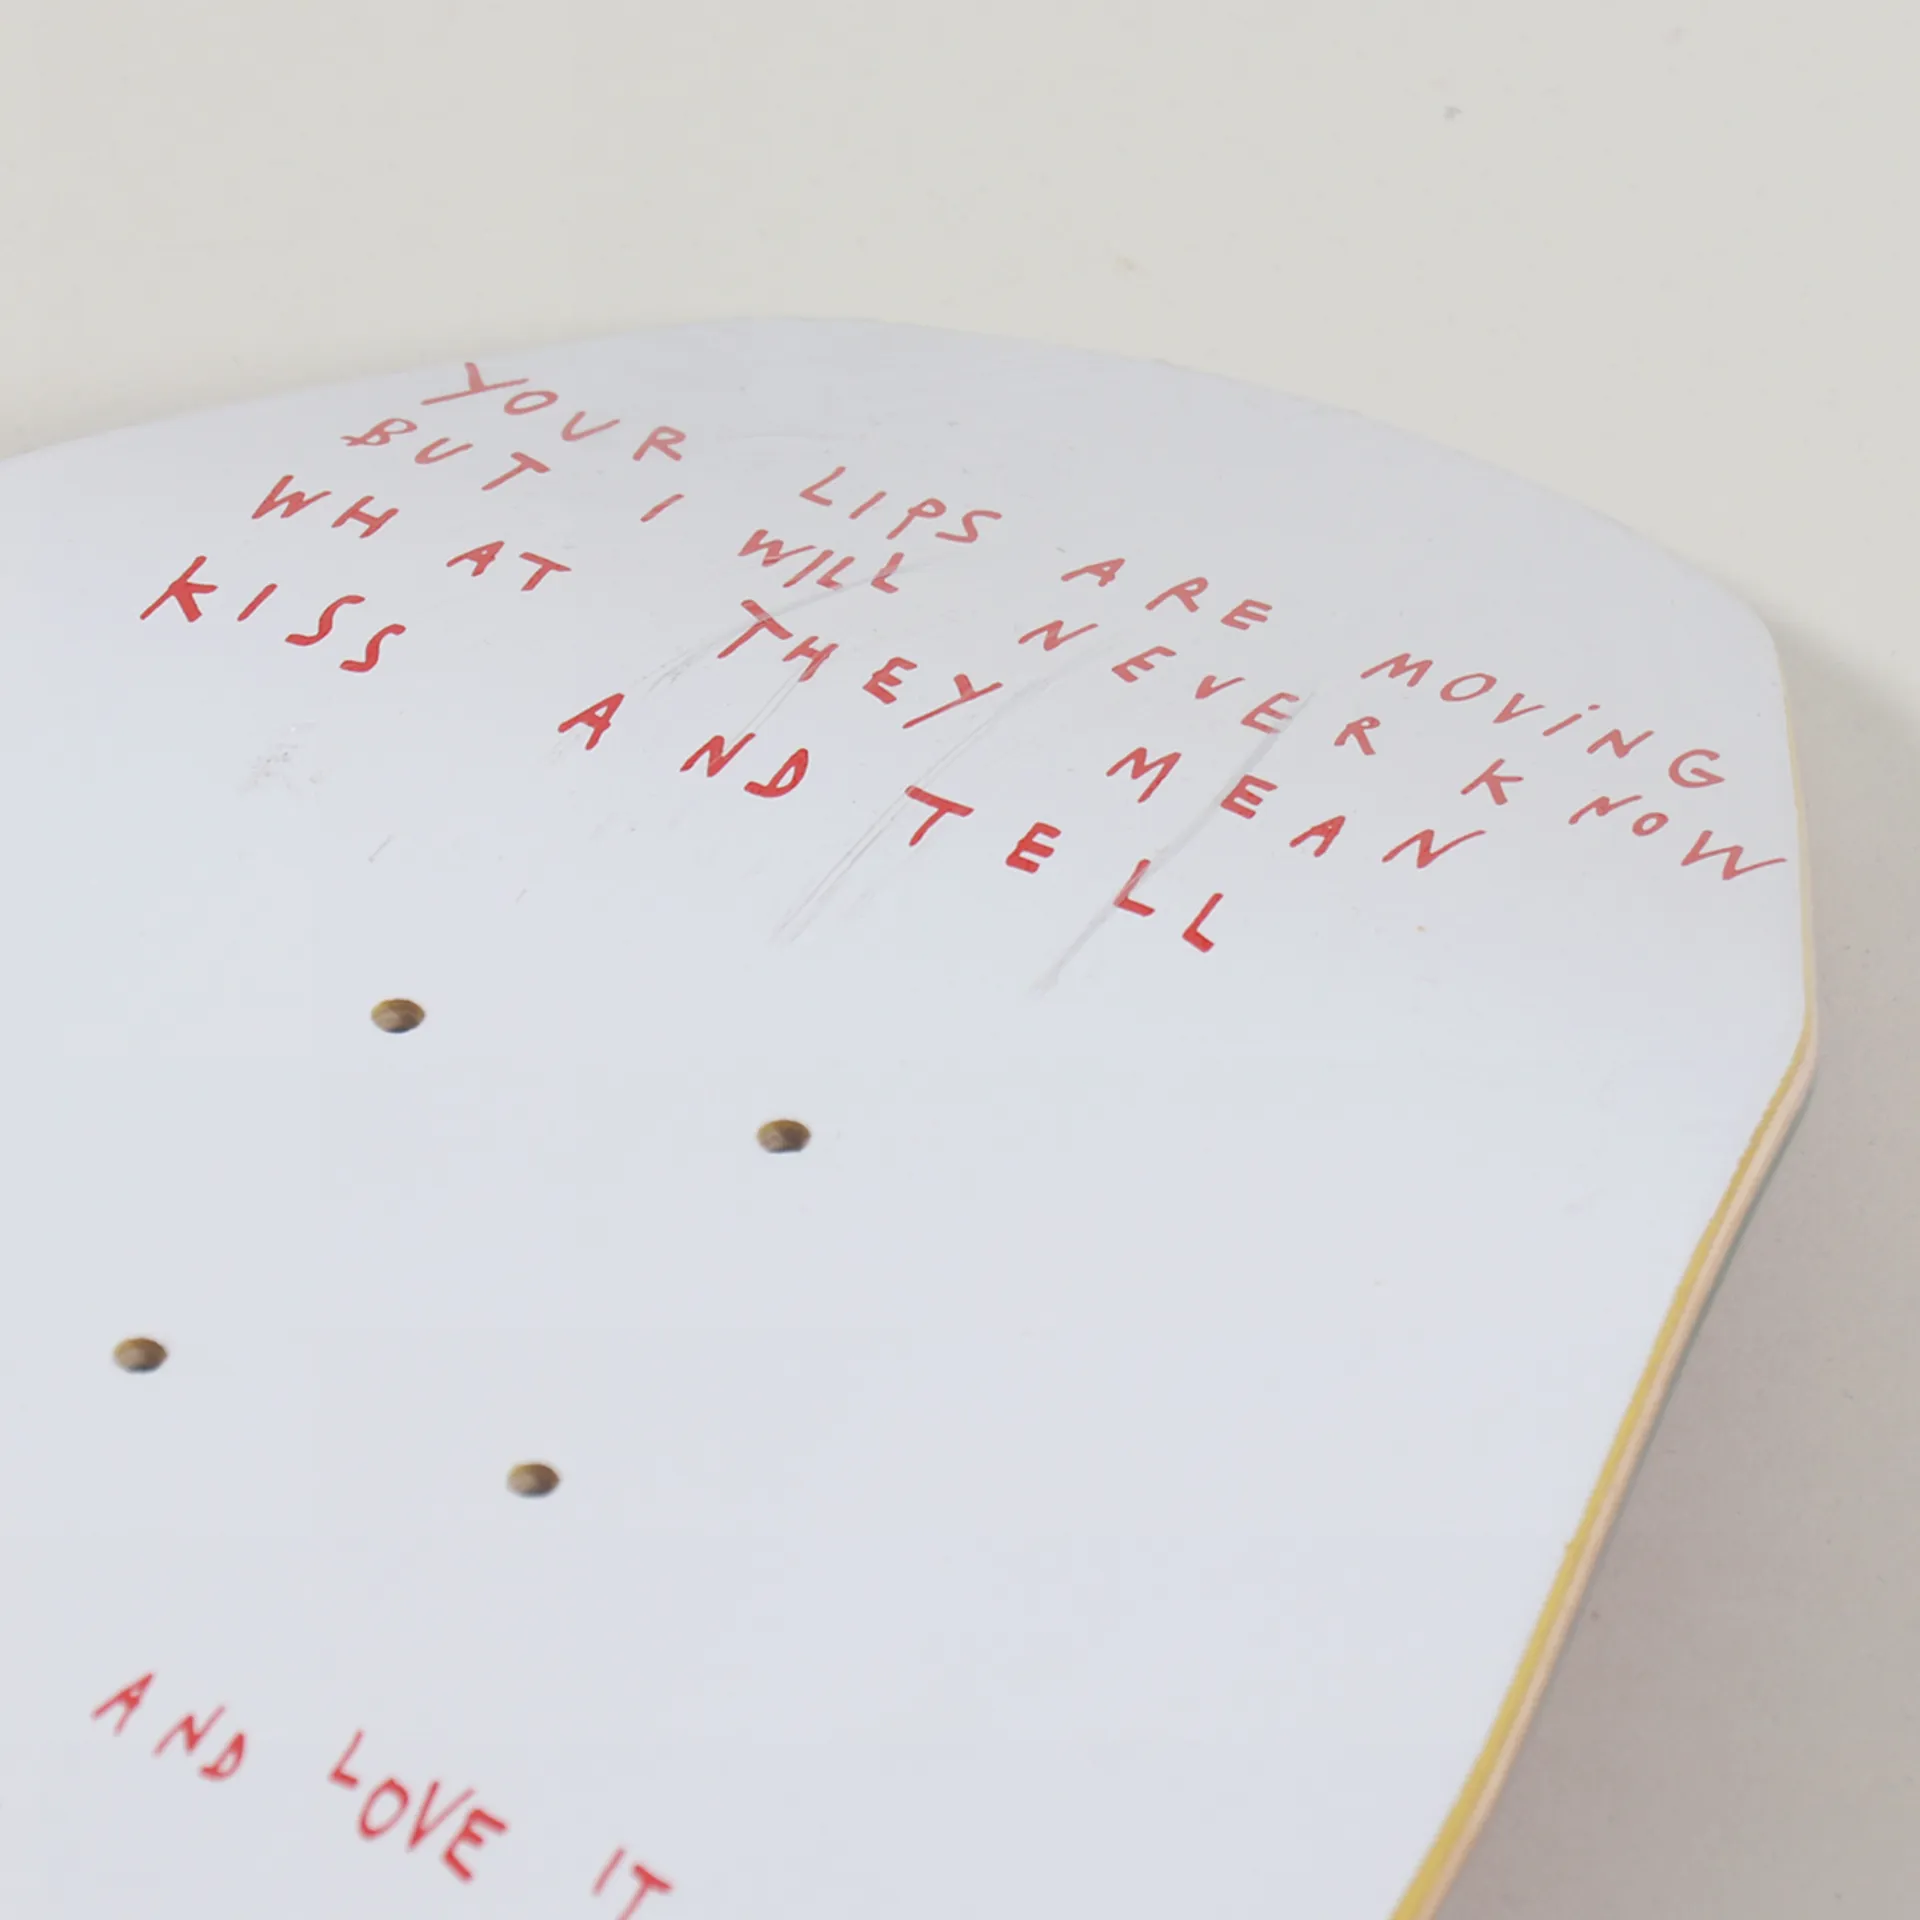 YOUR LIPS ARE MOVING
BUT I WILL NEVER KNOW
WHAT THEY MEAN
KISS AND TELL
AND LOVE IT